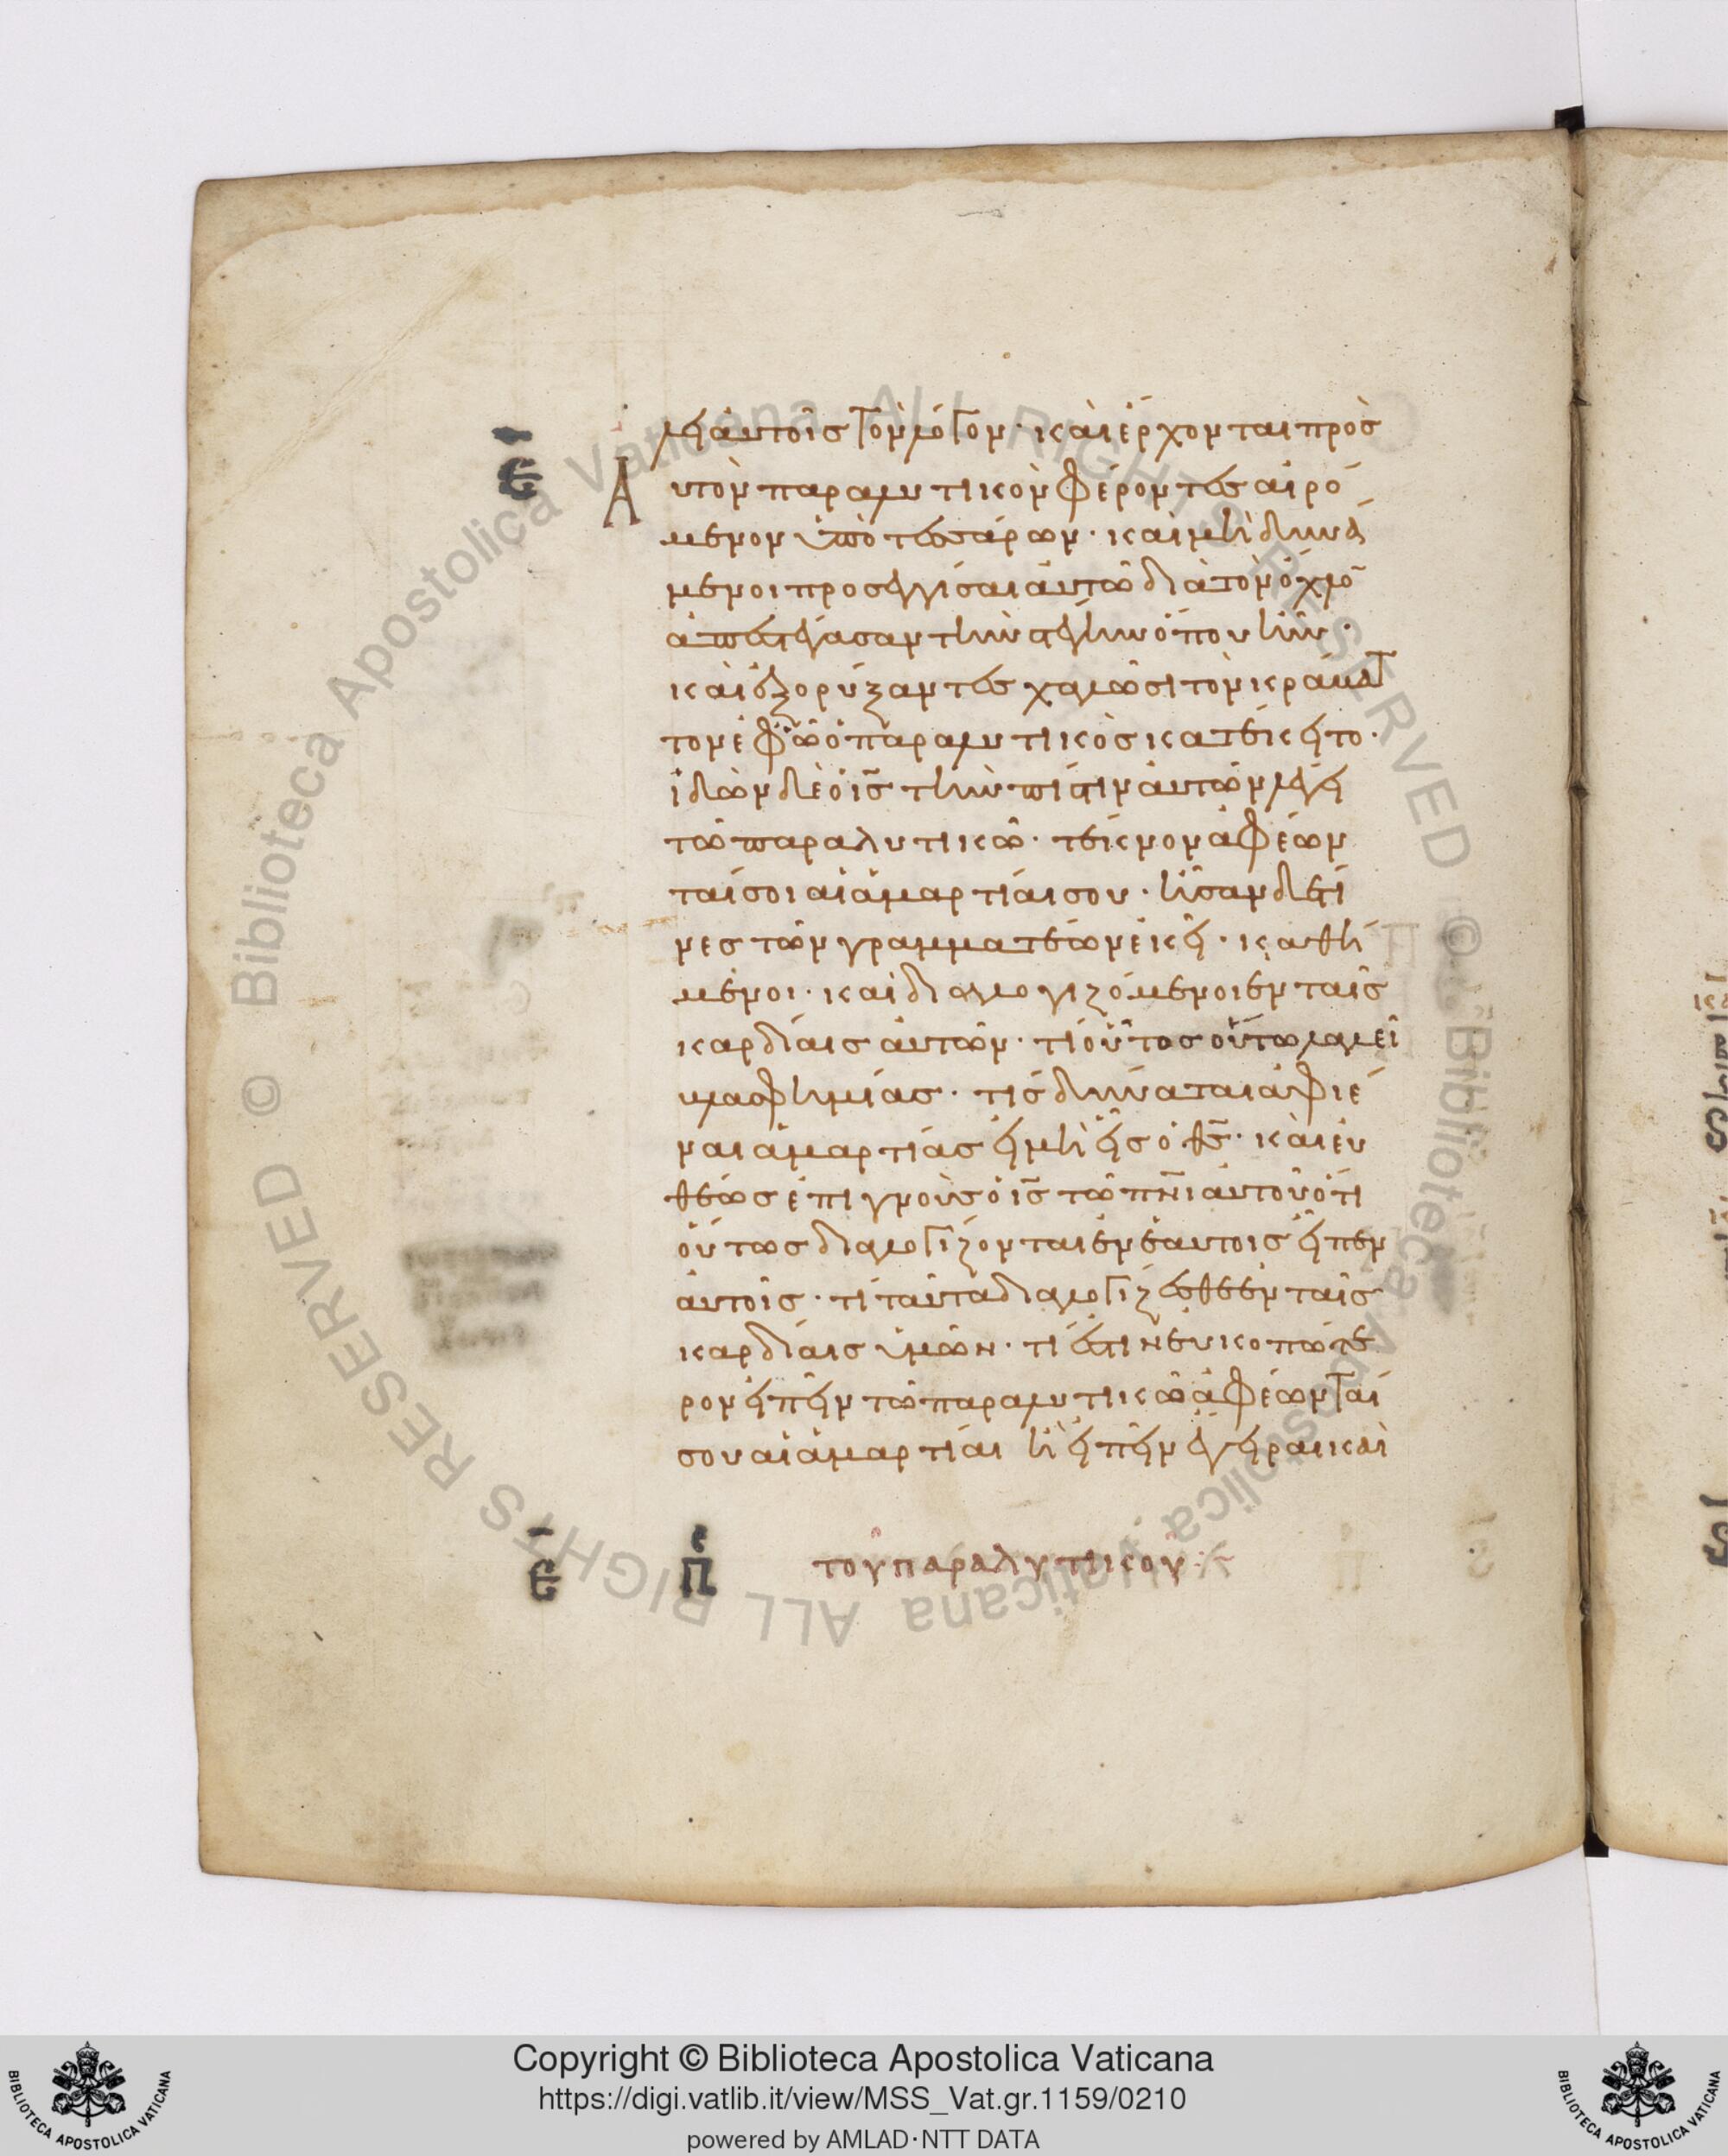 λει αὐτοῖς τὸν λόγον· καὶ ἔρχονται πρὸς
Αυτὸν παραλυτικὸν φέροντες αἰρό
μενον ὑπὸ τεσσάρων· καὶ μὴ δυνά
μενοι προσεγγίσαι αὐτῶ διὰ τὸν ὄχλο̄
ἀπεστέγασαν τὴν στέγην ὅπου ἦν·
καὶ ἐξορύξαντες χαλῶσι τὸν κράβατ
τον ἐφ' ὧ ὁ παραλυτικὸς κατέκειτο·
ἰδὼν δὲ ὁ ις̄ τὴν πίστιν αὐτῶν λέγει
τῶ παραλυτικῶ· τέκνον ἀφέων
ταί σοι αἱ ἁμαρτίαι σου· ἦσαν δέ τι
νες τῶν γραμματέων ἐκεῖ· καθή
μενοι· καὶ διαλογιζόμενοι εν ταῖς
καρδίαις αὐτῶν· τί οὗτος οὕτω λαλεῖ
βλασφημίας· τίς δύναται ἀφιέ
ναι ἁμαρτίας εἰ μὴ εἷς ὁ θς̄· καὶ εὐ
θέως ἐπιγνοὺς ὁ ις̄ τῶ πν̄ι αὐτοῦ ὅτι
οὕτως διαλογίζονται ἐν ἑαυτοις εἶπεν
αὐτοῖς· τί ταῦτα διαλογίζεσθε ἐν ταῖς
καρδίαις ὑμῶν· τί ἐστιν ευκοπώτε
ρον εἰπεῖν τῶ παραλυτικῶ ἀφέωνταί
σου αἱ ἁμαρτίαι ἢ εἰπεῖν ἔγειραι καὶ
ε̄ τοῦ παραλυτικοῦ
Copyright © Biblioteca Apostolica Vaticana
https://digi.vatlib.it/view/MSS_Vat.gr.1159/0210
powered by AMLAD·NTT DATA
BIBLIOTECA APOSTOLICA VATICANA
BIBLIOTECA APOSTOLICA VATICANA
© Biblioteca Apostolica Vaticana ALL RIGHTS RESERVED © Biblioteca Apostolica Vaticana ALL RIGHTS RESERVED